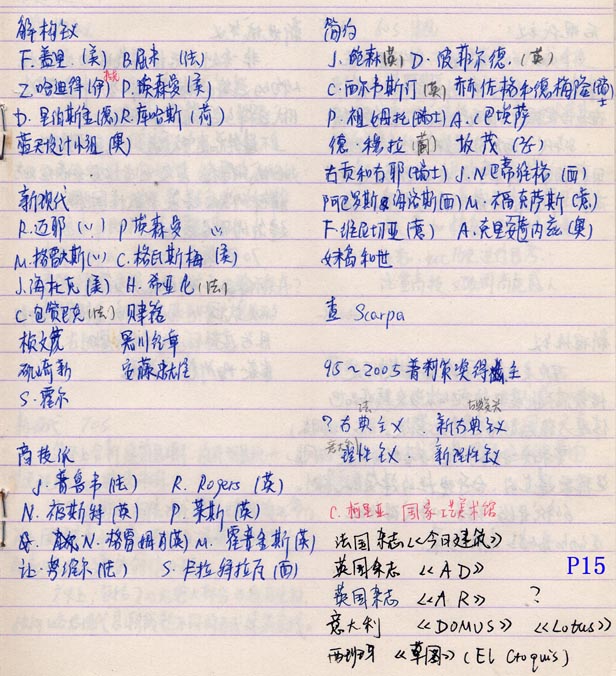 解构主义
F.盖里(美) B.屈米(法)
Z.哈迪得(伊)英 P.埃森曼(美)
D.里伯斯金(德) R.库哈斯(荷)
蓝天设计小组(奥)
新现代
R.迈耶(〃) P埃森曼 〃
M.格雷夫斯(〃) C.格瓦斯梅(美)
J.海杜克(美) H.希亚尼(法)
C.包赞巴克(法) 贝聿铭
槙文彦 黑川纪章
矶崎新 安藤忠雄
S.霍尔
高技派
J.普鲁韦(法) R. Rogers (英)
N.福斯特(英) P.莱斯(英)
N.格雷姆肖(英) M.霍普金斯(英)
让.努维尔(法) S.卡拉特拉瓦(西)
简约
J.鲍森(英) D.彼菲尔德.(英)
C.西尔韦斯汀(英) 赫佐格和德梅隆(瑞士)
P.祖姆托(瑞士) A.C巴埃萨
德.穆拉(葡) 坂茂(日)
古贡和古耶(瑞士) J.N巴蒂维格(西)
阿巴罗斯&海洛斯(西) M.福克萨斯(意)
F.维尼切亚(意) A.克里尚内兹(奥)
妹岛和世
查 Scarpa
95~2005普利策奖得主
法 古典复兴
?古典主义. 新古典主义
意大利
理性主义. 新理性主义
C.柯里亚 国家工艺美术馆
法国杂志《今日建筑》
英国杂志 《AD》
英国杂志 《AR》 ?
意大利 《DOMUS》 《Lotus》
西班牙 《草图》(El Croquis)
P15